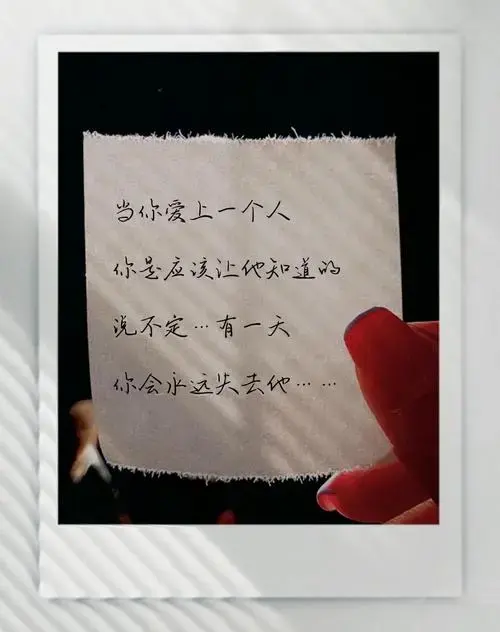 当你爱上一个人
你是应该让他知道的
说不定…有一天
你会永远失去他……